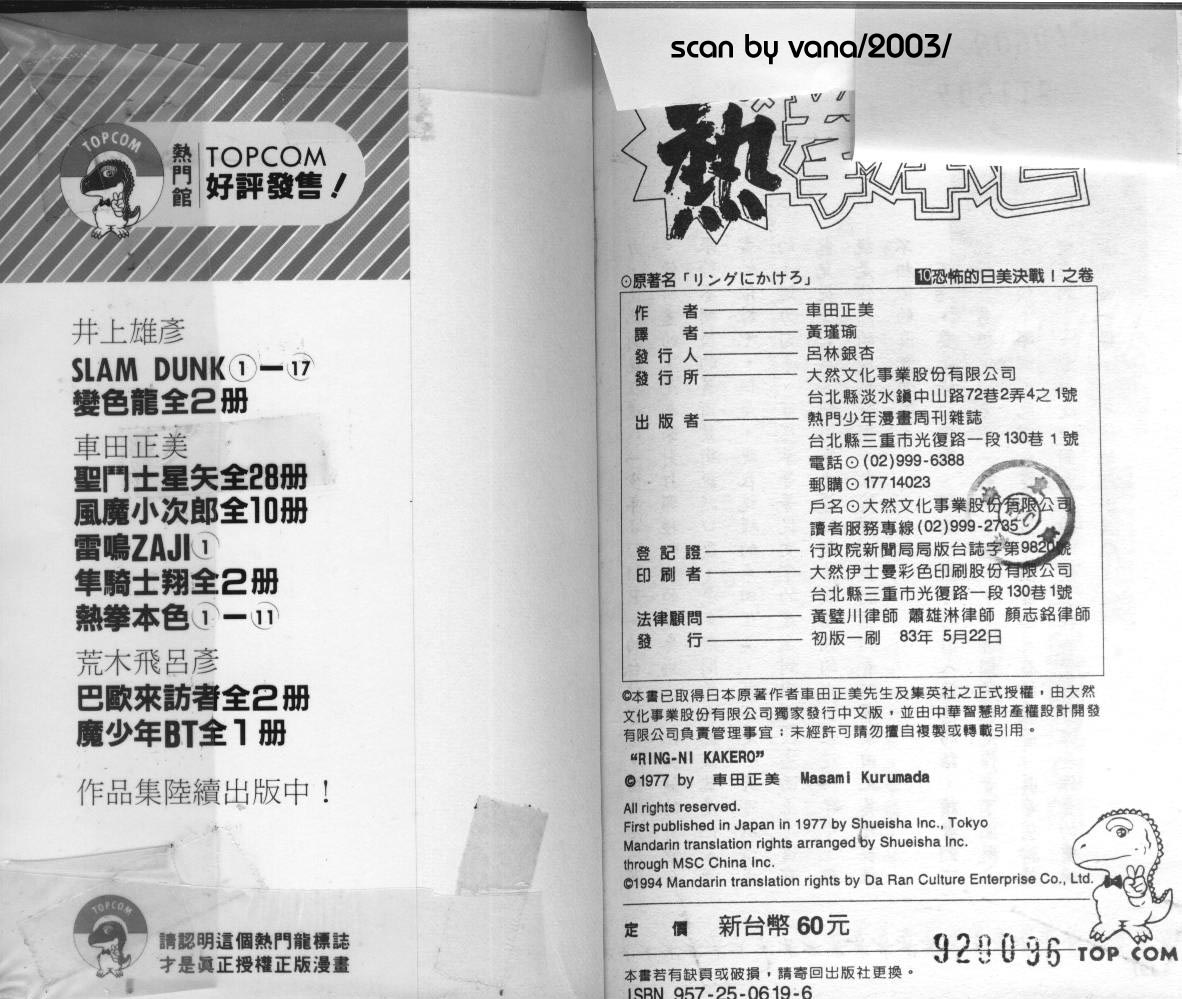 TOPCOM
熱門館
TOPCOM
好評發售！
井上雄彥
SLAM DUNK①—⑰
變色龍全2册
車田正美
聖鬥士星矢全28册
風魔小次郎全10册
雷鳴ZAJI①
隼騎士翔全2册
熱拳本色①—⑪
荒木飛呂彥
巴歐來訪者全2册
魔少年BT全1册
作品集陸續出版中！
TOPCOM
請認明這個熱門龍標誌
才是眞正授權正版漫畫
scan by vana/2003/
熱拳本色
⊙原著名「リングにかけろ」 10恐怖的日美決戰！之卷
作者 車田正美
譯者 黃瑾瑜
發行人 呂林銀杏
發行所 大然文化事業股份有限公司
台北縣淡水鎭中山路72巷2弄4之1號
出版者 熱門少年漫畫周刊雜誌
台北縣三重市光復路一段130巷1號
電話⊙(02)999-6388
郵購⊙17714023
戶名⊙大然文化事業股份有限公司
讀者服務專線(02)999-2735
登記證 行政院新聞局局版台誌字第9820號
印刷者 大然伊士曼彩色印刷股份有限公司
台北縣三重市光復路一段130巷1號
法律顧問 黃璧川律師 蕭雄淋律師 顏志銘律師
發行 初版一刷 83年 5月22日
©本書已取得日本原著作者車田正美先生及集英社之正式授權，由大然
文化事業股份有限公司獨家發行中文版，並由中華智慧財產權設計開發
有限公司負責管理事宜；未經許可請勿擅自複製或轉載引用。
“RING-NI KAKERO”
©1977 by 車田正美 Masami Kurumada
All rights reserved.
First published in Japan in 1977 by Shueisha Inc., Tokyo
Mandarin translation rights arranged by Shueisha Inc.
through MSC China Inc.
©1994 Mandarin translation rights by Da Ran Culture Enterprise Co., Ltd.
定價 新台幣60元
920096
TOP COM
本書若有缺頁或破損，請寄回出版社更換。
ISBN 957-25-0619-6